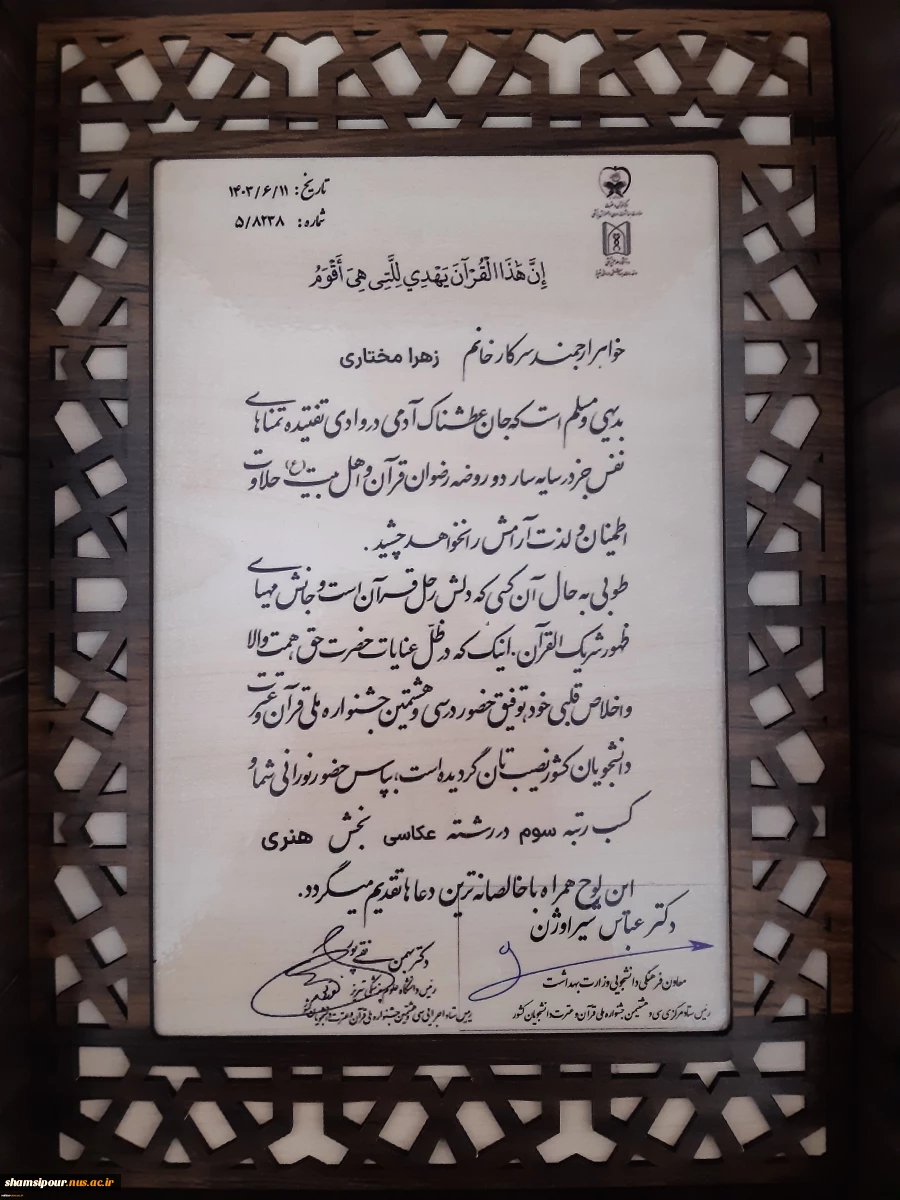 تاریخ: ۱۴۰۳/۶/۱۱
شماره: ۵/۸۲۳۸
إِنَّ هَٰذَا الْقُرْآنَ يَهْدِي لِلَّتِي هِيَ أَقْوَمُ
خواهر ارجمند سرکار خانم زهرا مختاری
بدیهی و مسلم است که جان عطشناک آدمی در وادی تفتیده تمناهای
نفس جز در سایه سار دو روضه رضوان قرآن و اهل بیت (ع) حلاوت
اطمینان و لذت آرامش را نخواهد چشید.
طوبی به حال آن کسی که دلش رحل قرآن است و جانش مهیای
ظهور شریک القرآن. اینک که در ظلّ عنایات حضرت حق، همت والا
و اخلاص قلبی خود، توفیق حضور در سی و هشتمین جشنواره ملی قرآن و عترت
دانشجویان کشور نصیب تان گردیده است؛ بپاس حضور نورانی شما و
کسب رتبه سوم در رشته عکاسی بخش هنری
این لوح همراه با خالصانه ترین دعاها تقدیم میگردد.
دکتر عباس شیراوژن
معاون فرهنگی دانشجویی وزارت بهداشت
رئیس ستاد مرکزی سی و هشتمین جشنواره ملی قرآن و عترت دانشجویان کشور
دکتر بهمن نقی پور
رئیس دانشگاه علوم پزشکی تبریز
رییس ستاد اجرایی سی و هشتمین جشنواره ملی قرآن و عترت دانشجویان کشور
shamsipour.nus.ac.ir